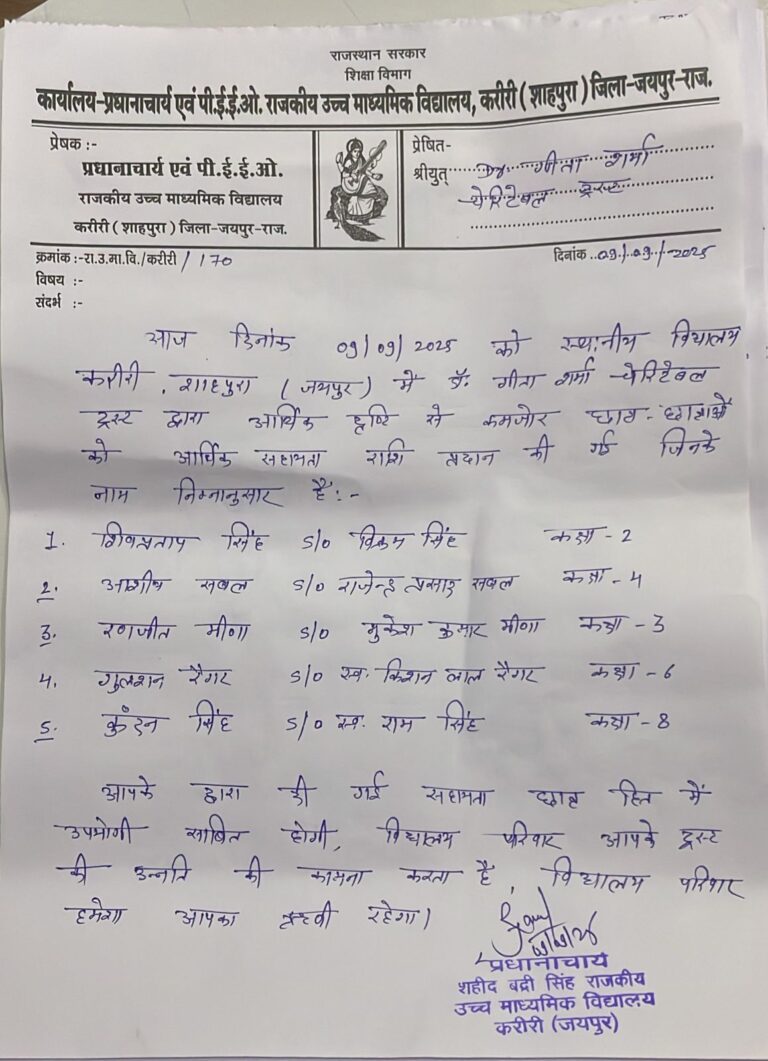 राजस्थान सरकार
शिक्षा विभाग
कार्यालय-प्रधानाचार्य एवं पी.ई.ई.ओ. राजकीय उच्च माध्यमिक विद्यालय, करीरी ( शाहपुरा ) जिला-जयपुर-राज.
प्रेषक :-
प्रधानाचार्य एवं पी.ई.ई.ओ.
राजकीय उच्च माध्यमिक विद्यालय
करीरी ( शाहपुरा ) जिला-जयपुर-राज.
प्रेषित-
श्रीयुत् Dr गीता शर्मा
चेरिटेबल ट्रस्ट
क्रमांक :-रा.उ.मा.वि./करीरी / 170
दिनांक ..09/09/2025
विषय :-
संदर्भ :-
आज दिनांक 09/09/2025 को स्थानीय विद्यालय
करीरी, शाहपुरा (जयपुर) में डॉ. गीता शर्मा चेरिटेबल
ट्रस्ट द्वारा आर्थिक दृष्टि से कमजोर छात्र-छात्राओं
को आर्थिक सहायता राशि प्रदान की गई जिनके
नाम निम्नानुसार हैं:-
1. शिवप्रताप सिंह S/O विक्रम सिंह कक्षा - 2
2. आशीष सबल S/O राजेन्द्र प्रसाद सबल कक्षा - 4
3. रणजीत मीणा S/O मुकेश कुमार मीणा कक्षा - 3
4. गुलशन रैगर S/O स्व. किशन लाल रैगर कक्षा - 6
5. कुंदन सिंह S/O स्व. राम सिंह कक्षा - 8
आपके द्वारा की गई सहायता छात्र हित में
उपयोगी साबित होगी, विद्यालय परिवार आपके ट्रस्ट
की उन्नति की कामना करता है, विद्यालय परिवार
हमेशा आपका ऋणी रहेगा।
प्रधानाचार्य
शहीद बद्री सिंह राजकीय
उच्च माध्यमिक विद्यालय
करीरी (जयपुर)